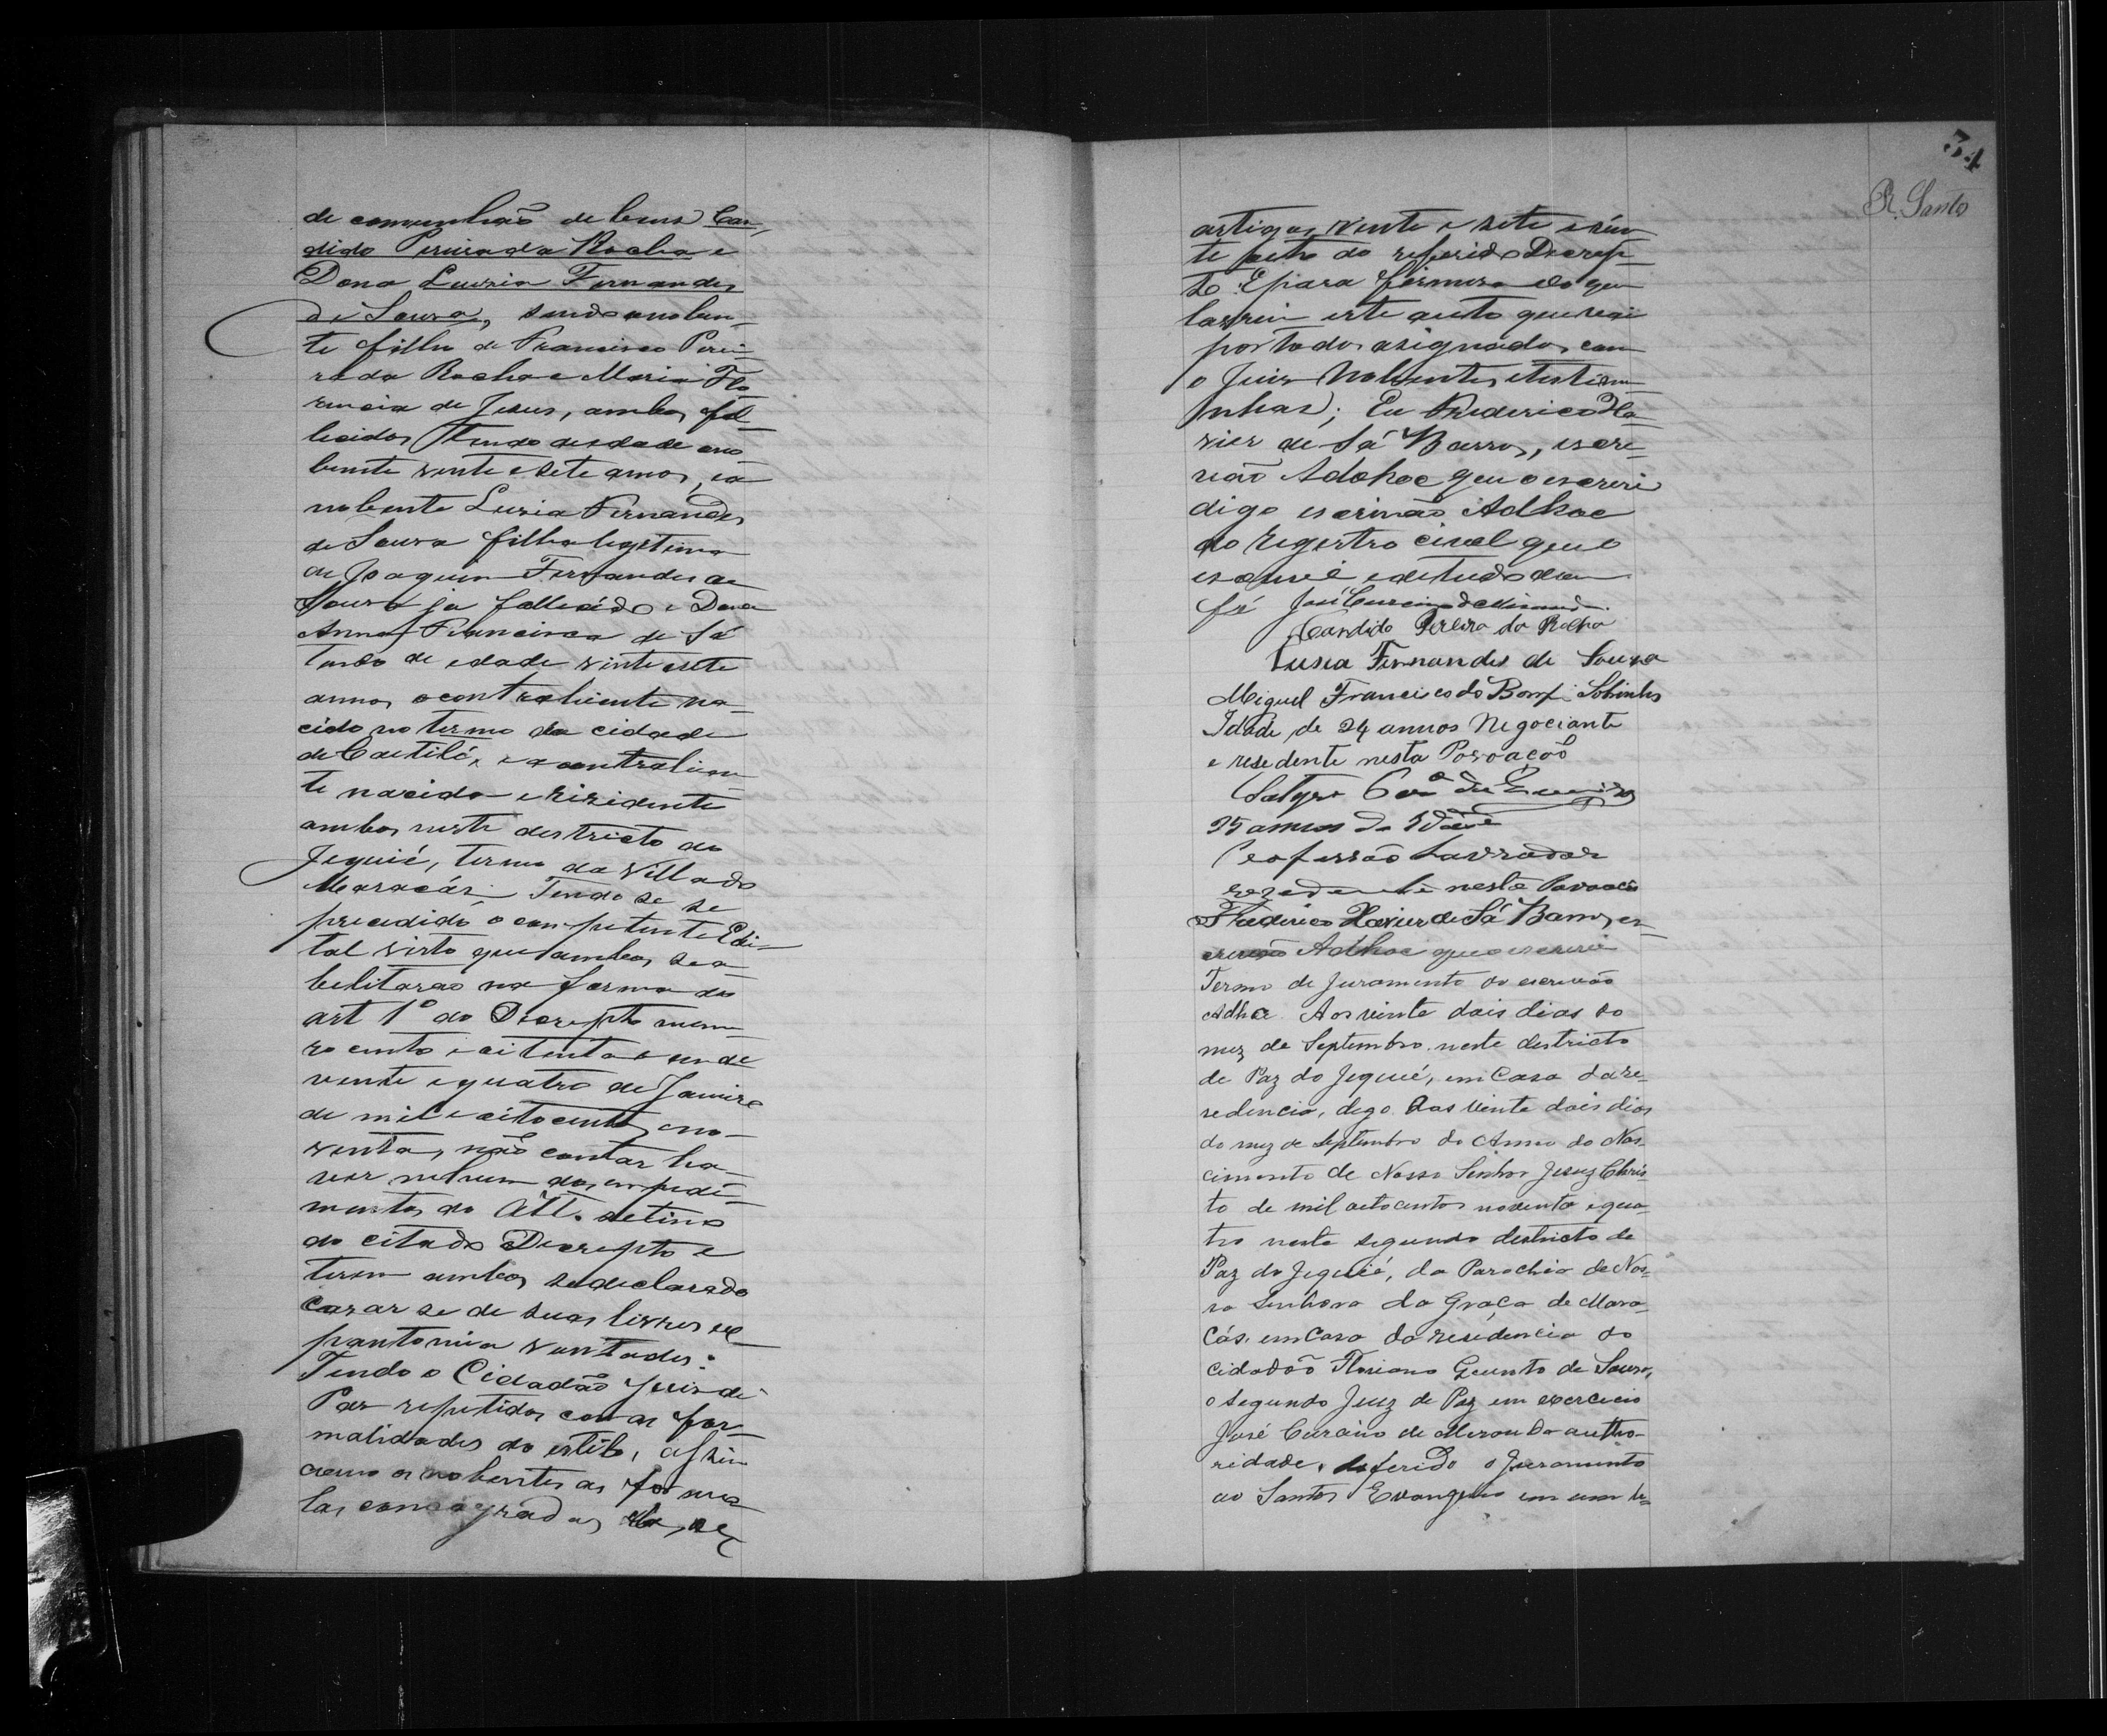 de comunhaõ de bens Can,
dido Pereira da Rocha e
Dona Luzia Fernandes
de Souza, sendo o nobem,
te filho de Francisco Perei-
ra da Rocha e Maria Flo
rencia de Jesus, ambos fal-
lecidos tendo de idade o no
bente vinte e sete annos, e a
nobente Luzia Fernandes
de Souza filha legitima
de Joaquim Fernandes de
Souza ja fallecido e Dona
Anna Francisca de Sá
tendo de edade vinte e sete
annos o contrahente na-
cido no termo da cidade
de Caetité, e a contrahen-
te nacida e rizidente
ambos neste destricto do
Jequié, termo da Villa do
Maracás. Tendo se se
precedido o competente Edi-
tal visto que ambos se a-
belitarão na forma do
art 1º do Decrepto nume-
ro cento e oitenta e um de
vente e quatro de Janeiro
de mil e oitocentos e no-
venta, não contar ha-
ver nehum dos empedi-
mentos do Art. setimo
do citado Decrepto e
terem ambos se declarado
cazar se de suas livres es
pantonia vontades:
Tendo o Cidadão Juis de
Paz repetidos com as for-
malidades do estilo, assim
como os nobentes as formu
las consagradas
artigos vinte e sete e vin
te oito do referido Decrep-
to. E para firmesa do que
lavrei este auto que vai
por todos asignados com
o Juis Nobentes e testemu-
nhas; Eu Frederico Xa-
vier de Sá Barros, escri-
vão Adohoc que o escrevi
digo escrivão Adhoc
do Registro civel que o
escrevi e de tudo dou
fé José Curcino de Miranda.
Candido Pereira da Rocha
Lusia Fernandes de Souza
Miguel Francisco do Bomf. Sobinho
Idade de 24 annos Negociante
e resedente nesta Povoação
Satyro
25 annos de Idade
Profersão Lavrador
rezedente nesta Povoação
Frederico Xavier de Sá Barros, es-
crivão Adhoc que o escrevi
Termo de Juramento do escrivão
Adhoc. Aos vinte dois dias do
mez de Septembro neste destricto
de Paz do Jequié, em Casa da re-
sedencia, dego Aos vinte dois dias
do mez de Septembro do Anno do Nas-
cimento de Nosso Senhor Jesuz Chris
to de mil oitocentos noventa e qua-
tro neste segundo destricto de
Paz do Jequié, da Parochia de Nos-
sa Senhora da Graça de Mara-
cás. em Casa da residencia do
cidadão Floriano Gcunto de Souza,
o segundo Juiz de Paz em exercicio
José Curcino de Meranda autho-
ridade, deferido o Juramento
ao Santos Evangelhos em um li=
34
R. Santo